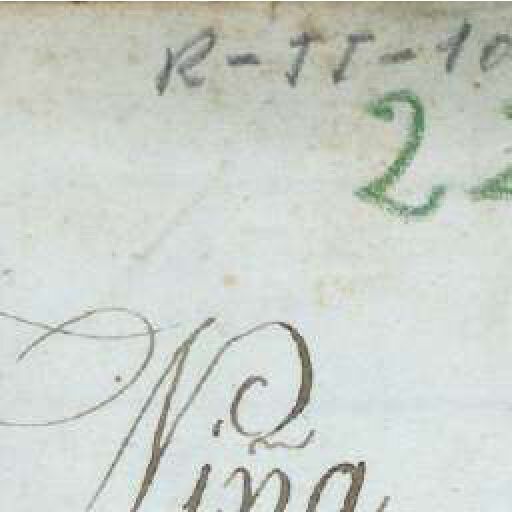 R-II-10
22
Niña